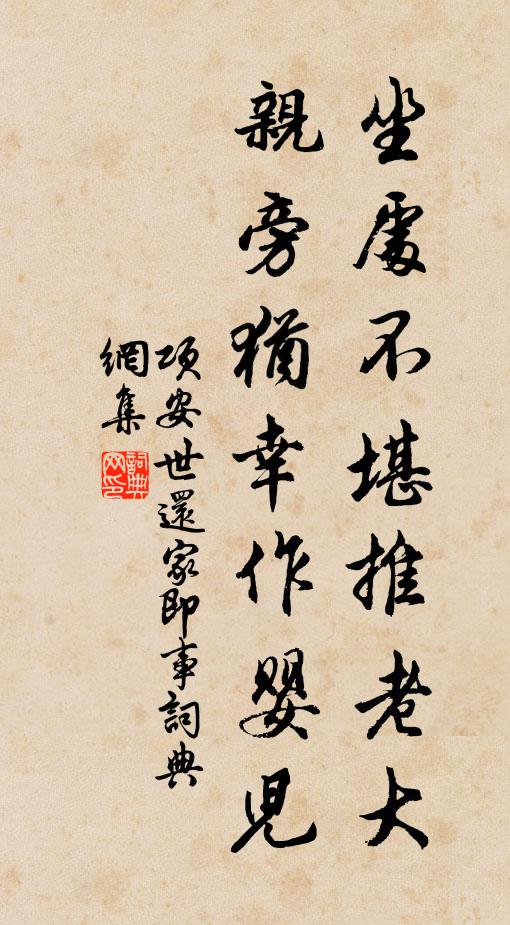 坐處不堪推老大
親旁猶幸作嬰兒
項安世還家即事詞典
網集
詞典網印